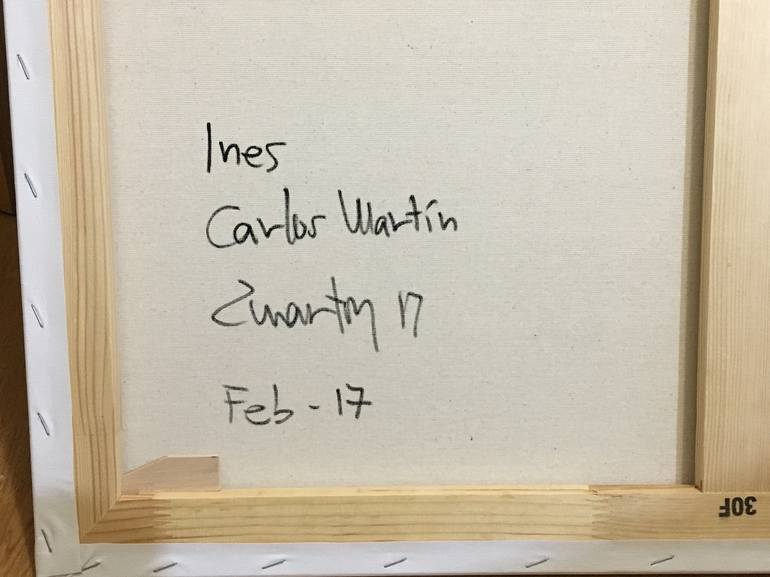 Ines
Carlos Martín
17
Feb - 17
30F